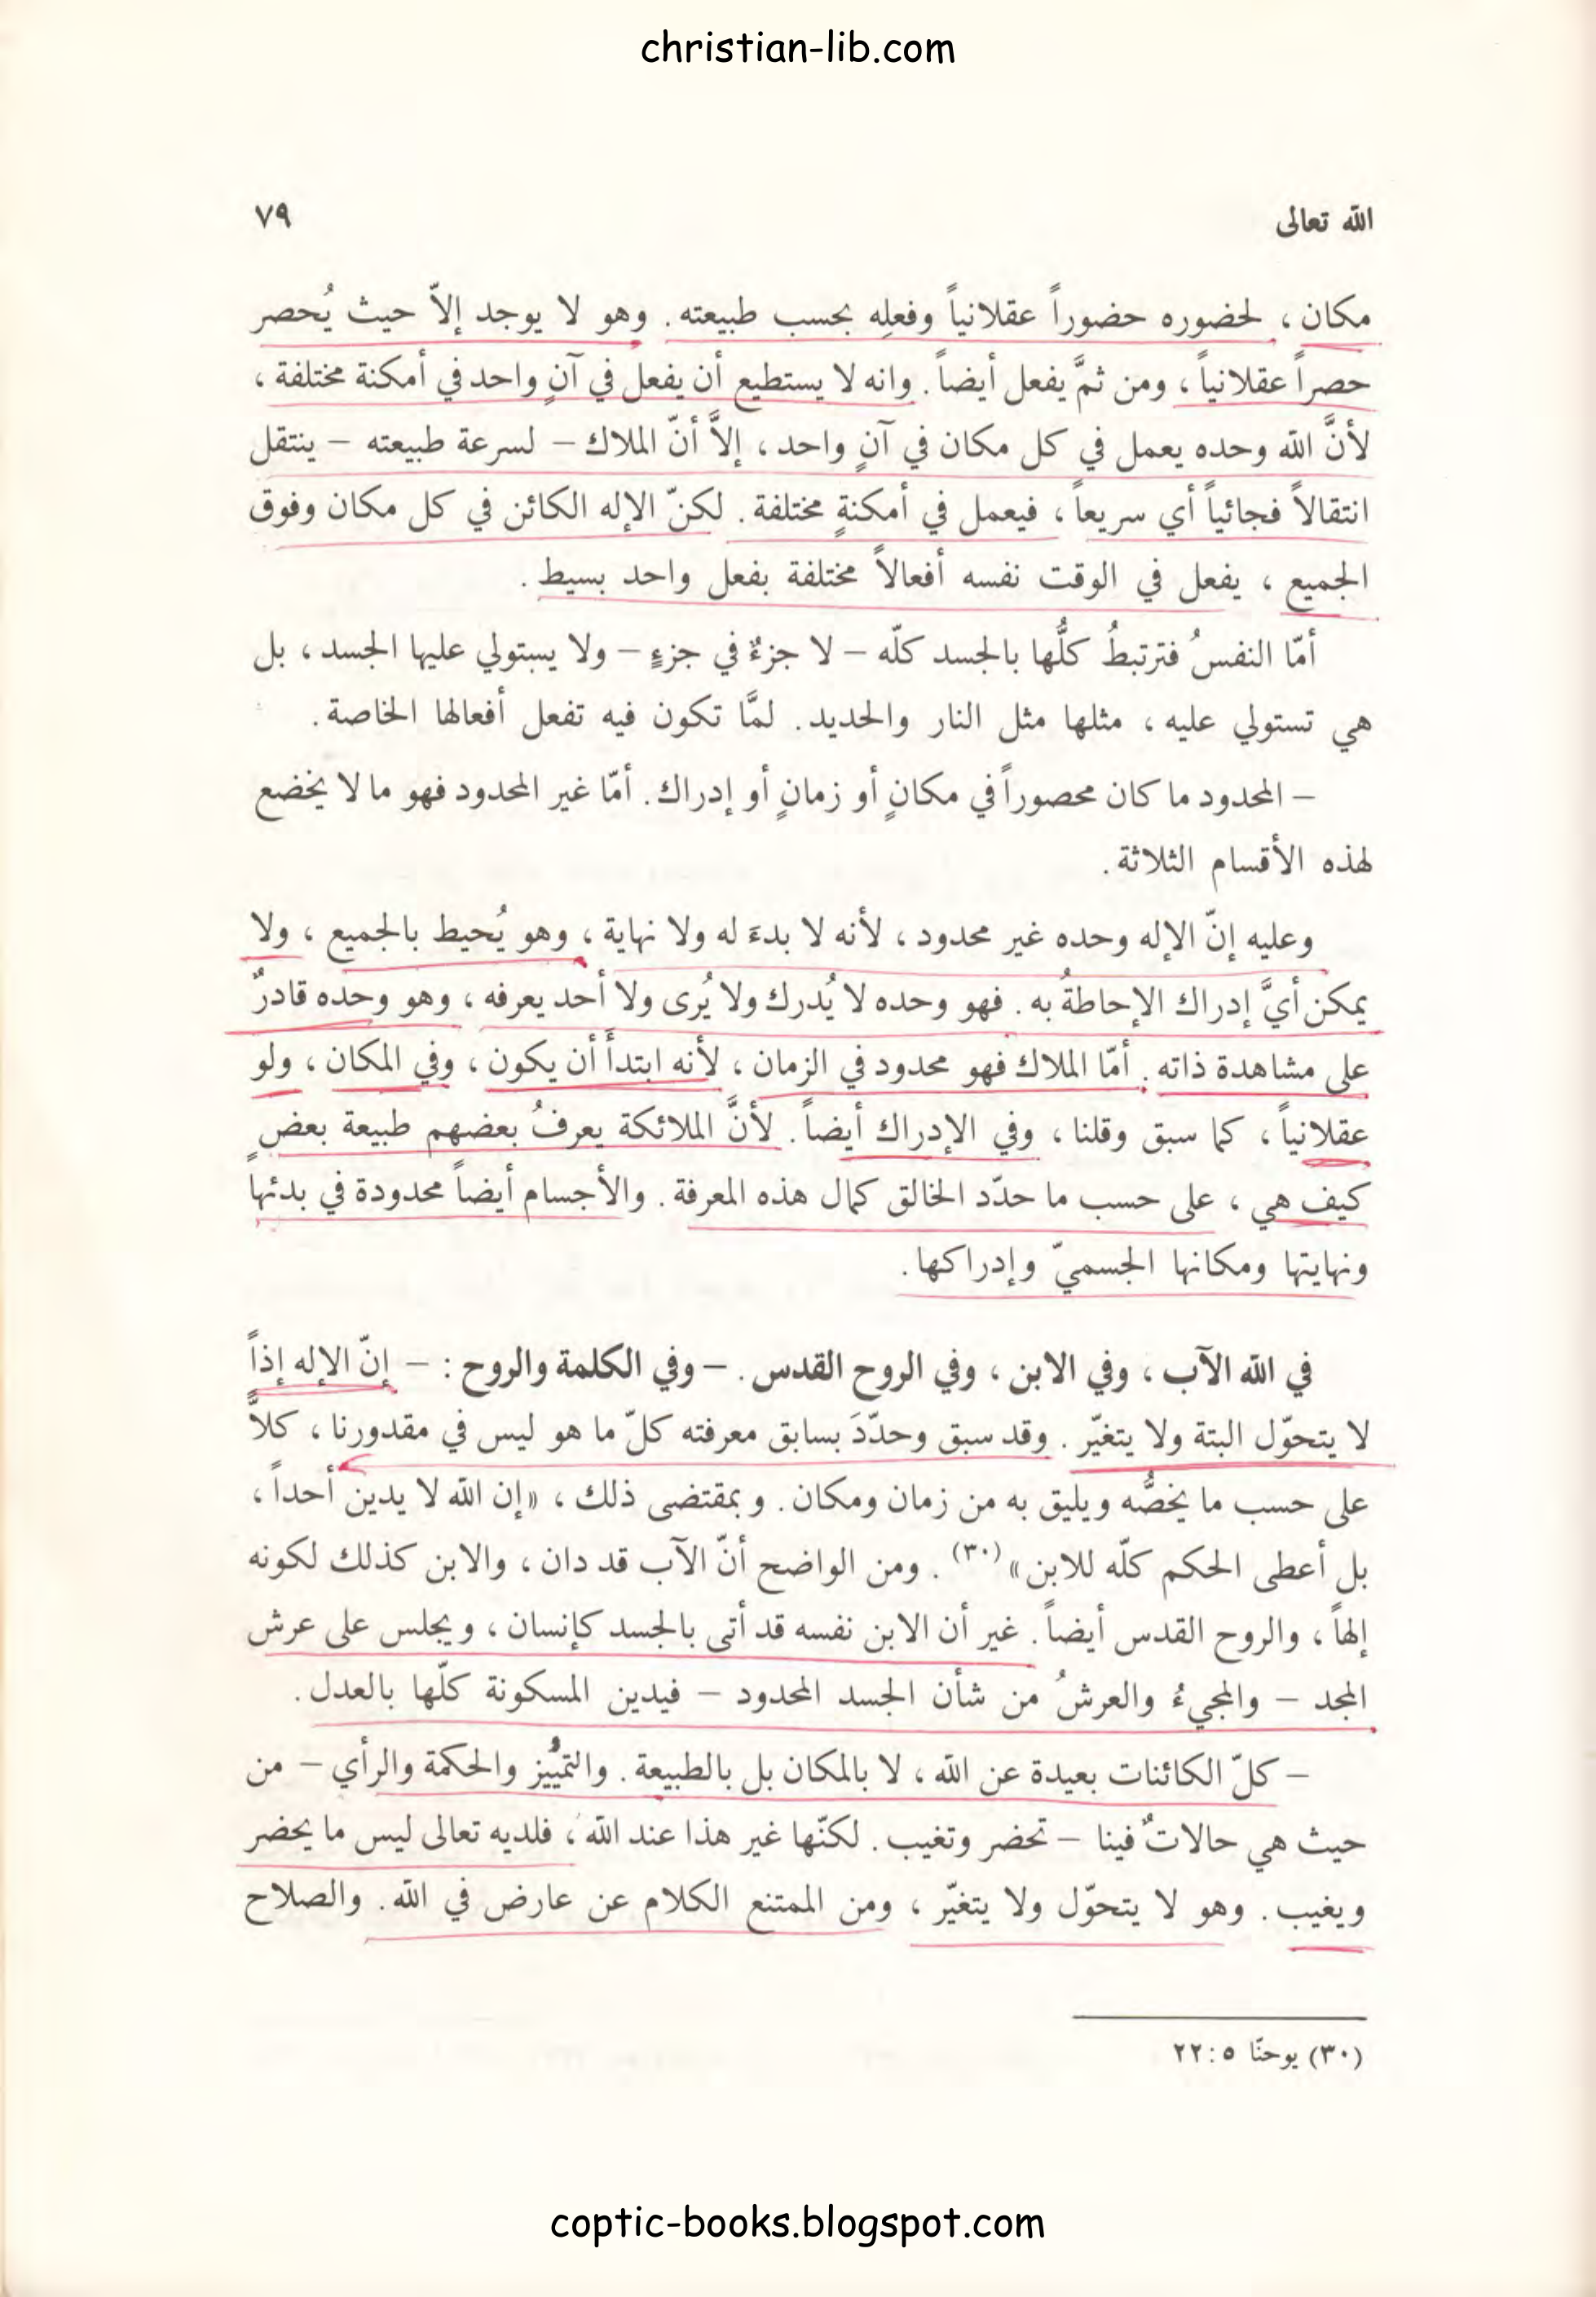 christian-lib.com
الله تعالى ٧٩
مكان ، لحضوره حضوراً عقلانياً وفعلِه بحسب طبيعته . وهو لا يوجد إلاّ حيث يُحصر
حصراً عقلانياً ، ومن ثمَّ يفعل أيضاً . وانه لا يستطيع أن يفعل في آنٍ واحد في أمكنة مختلفة ،
لأنَّ الله وحده يعمل في كل مكان في آنٍ واحد ، إلاَّ أنّ الملاك – لسرعة طبيعته – ينتقل
انتقالاً فجائياً أي سريعاً ، فيعمل في أمكنةٍ مختلفة . لكنّ الإله الكائن في كل مكان وفوق
الجميع ، يفعل في الوقت نفسه أفعالاً مختلفة بفعل واحد بسيط .
أمّا النفسُ فترتبطُ كلُّها بالجسد كلّه – لا جزءٌ في جزءٍ – ولا يستولي عليها الجسد ، بل
هي تستولي عليه ، مثلها مثل النار والحديد . لمَّا تكون فيه تفعل أفعالها الخاصة .
– المحدود ما كان محصوراً في مكانٍ أو زمانٍ أو إدراك . أمّا غير المحدود فهو ما لا يخضع
لهذه الأقسام الثلاثة .
وعليه إنّ الإله وحده غير محدود ، لأنه لا بدءَ له ولا نهاية ، وهو يُحيط بالجميع ، ولا
يمكن أيَّ إدراك الإحاطةُ به . فهو وحده لا يُدرك ولا يُرى ولا أحد يعرفه ، وهو وحده قادرٌ
على مشاهدة ذاته . أمّا الملاك فهو محدود في الزمان ، لأنه ابتدأَ أن يكون ، وفي المكان ، ولو
عقلانياً ، كما سبق وقلنا ، وفي الإدراك أيضاً . لأنَّ الملائكة يعرفُ بعضهم طبيعة بعضٍ
كيف هي ، على حسب ما حدّد الخالق كمال هذه المعرفة . والأجسام أيضاً محدودة في بدئها
ونهايتها ومكانها الجسميّ وإدراكها .
في الله الآب ، وفي الابن ، وفي الروح القدس . – وفي الكلمة والروح : – إنّ الإله إذاً
لا يتحوّل البتة ولا يتغيّر . وقد سبق وحدّدَ بسابق معرفته كلّ ما هو ليس في مقدورنا ، كلاًّ
على حسب ما يخصُّه ويليق به من زمان ومكان . وبمقتضى ذلك ، «إن الله لا يدين أحداً ،
بل أعطى الحكم كلّه للابن» (٣٠) . ومن الواضح أنّ الآب قد دان ، والابن كذلك لكونه
إلهاً ، والروح القدس أيضاً . غير أن الابن نفسه قد أتى بالجسد كإنسان ، ويجلس على عرش
المجد – والمجيءُ والعرشُ من شأن الجسد المحدود – فيدين المسكونة كلّها بالعدل .
– كلّ الكائنات بعيدة عن الله ، لا بالمكان بل بالطبيعة . والتمييُز والحكمة والرأي – من
حيث هي حالاتٌ فينا – تحضر وتغيب . لكنّها غير هذا عند الله ، فلديه تعالى ليس ما يحضر
ويغيب . وهو لا يتحوّل ولا يتغيّر ، ومن الممتنع الكلام عن عارض في الله . والصلاح
(٣٠) يوحنّا ٥ : ٢٢
coptic-books.blogspot.com